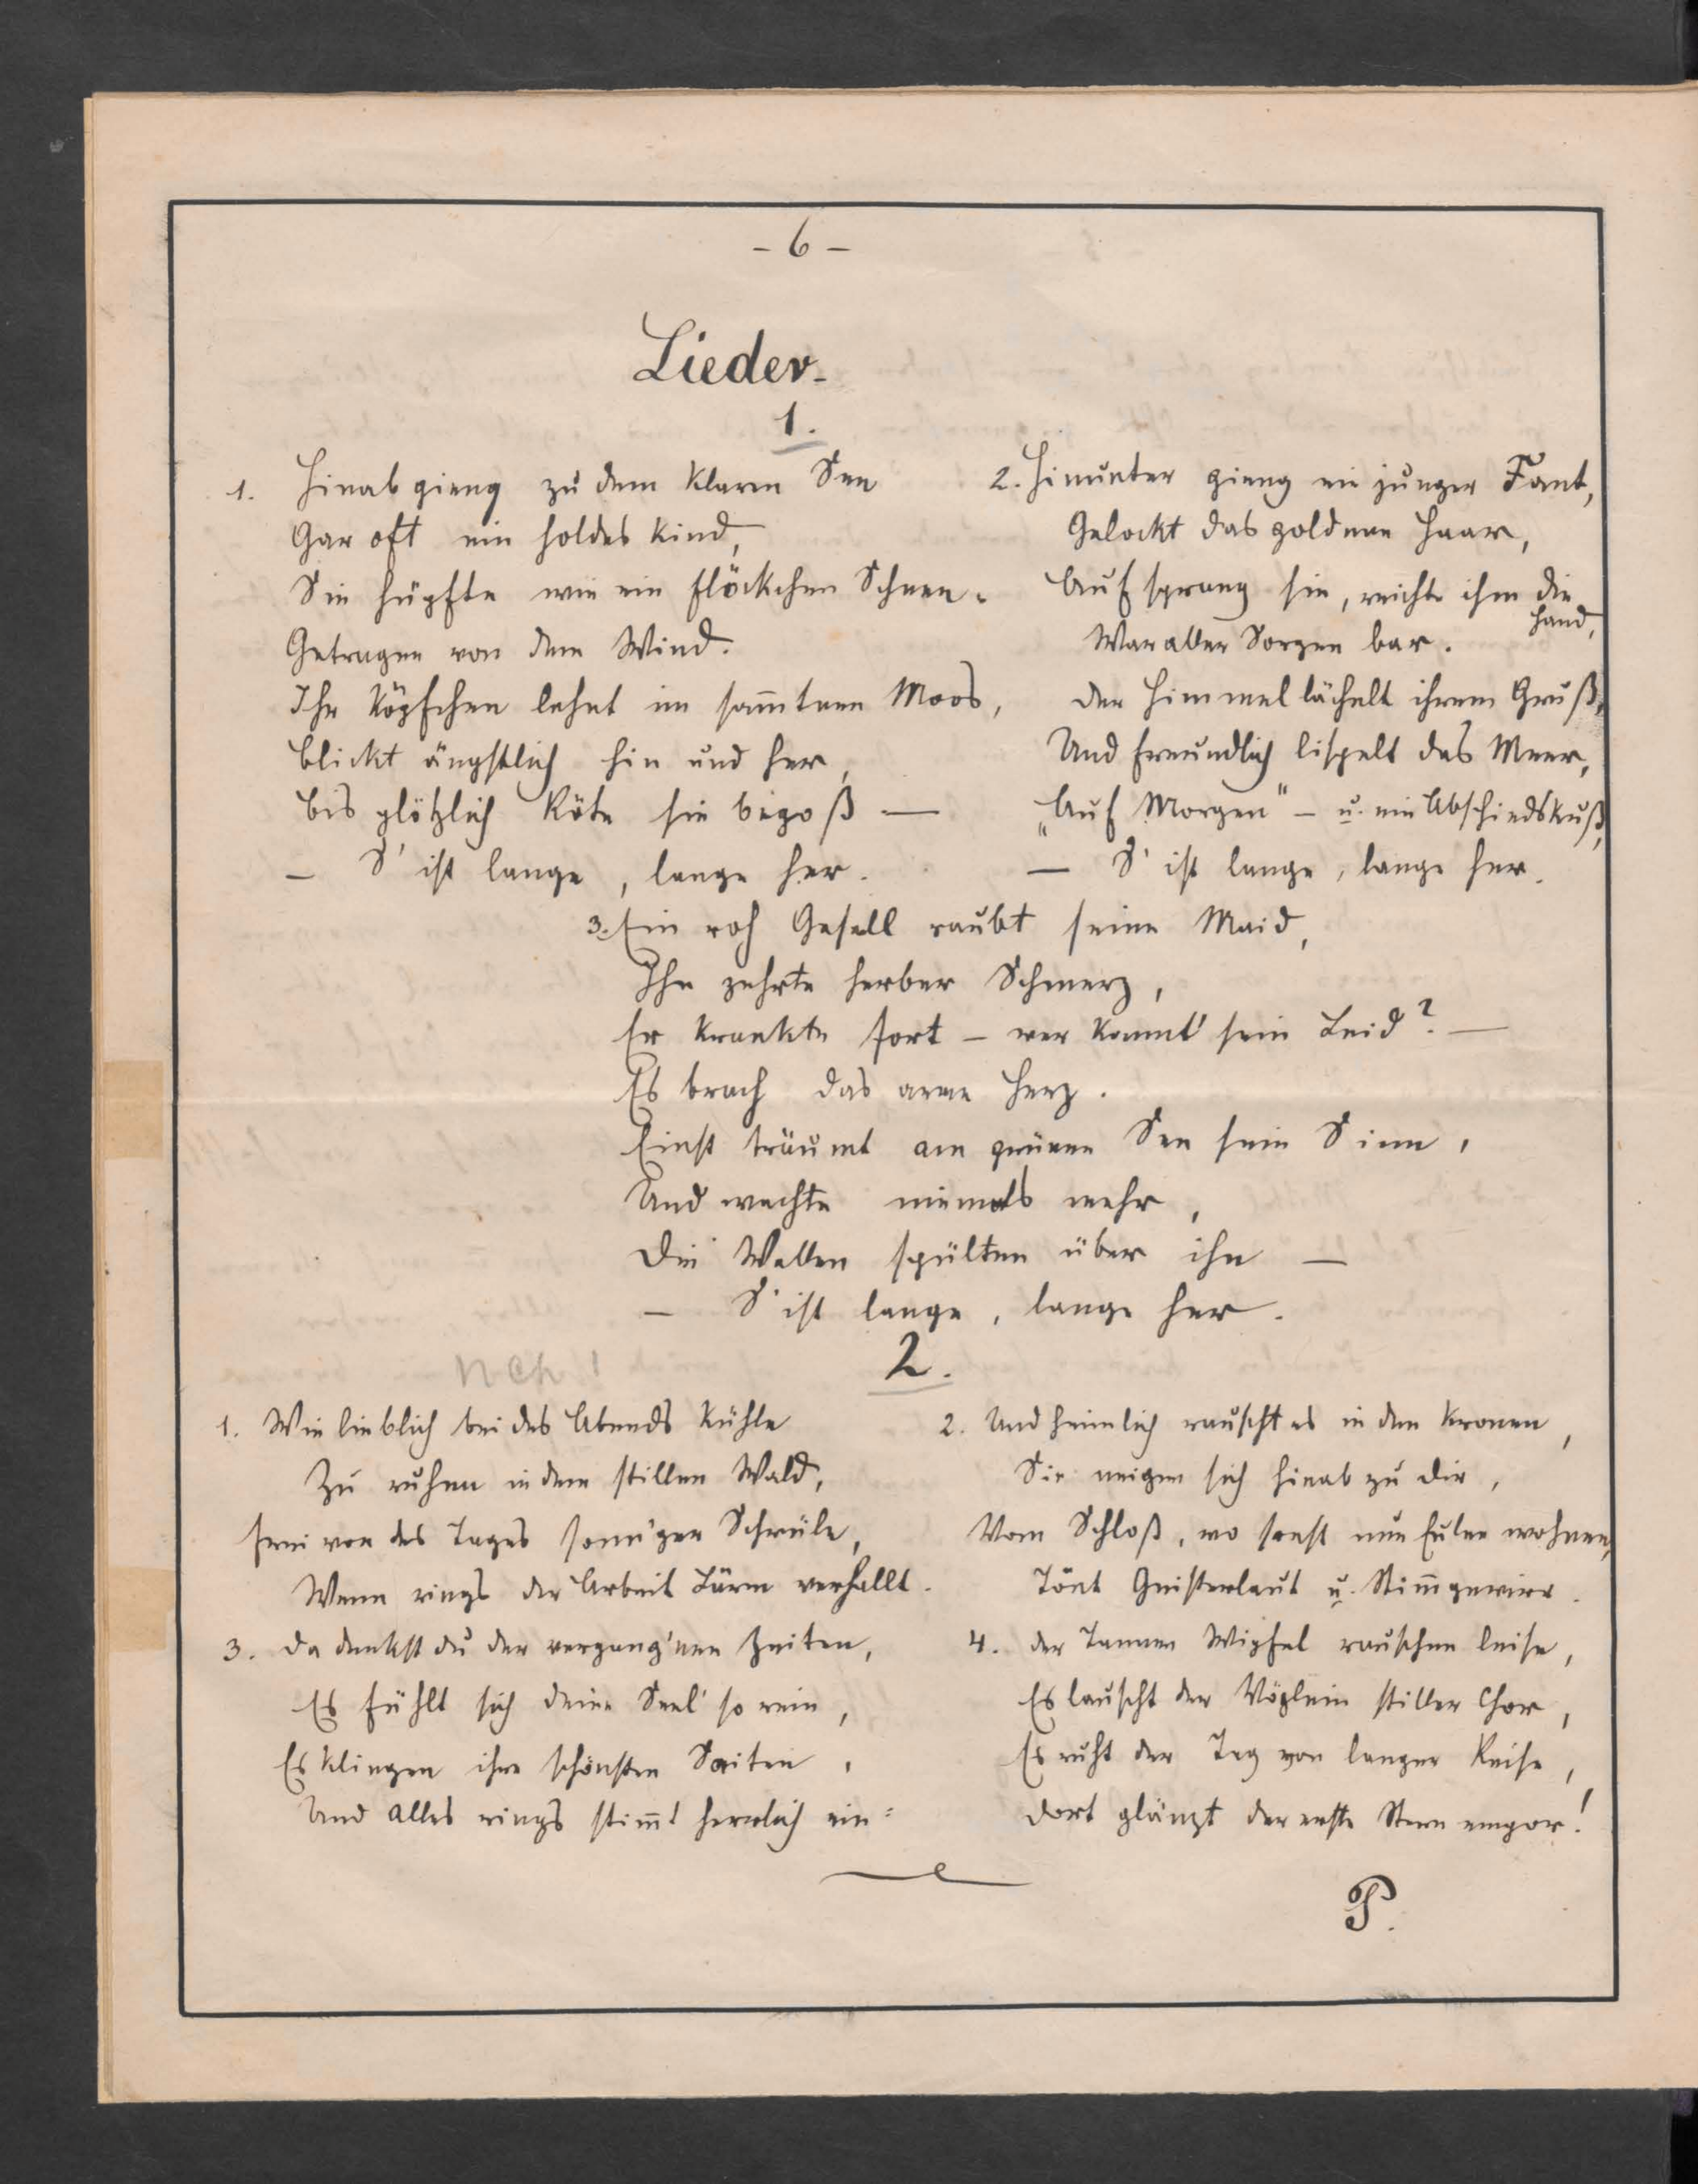 - 6 -
Lieder.
1.
1. Hinab gieng zu dem klaren See
Gar oft ein holdes Kind,
Sie hüpfte wie ein Flöckchen Schnee.
Getragen von dem Wind.
Ihr Köpfchen lehnt im sam̄tnen Moos,
Blickt ängstlich hin und her,
Bis plötzlich Röte sie begoß —
— S' ist lange, lange her.
2. Hinunter gieng ein junger Fant,
Gelockt das goldene Haar,
Auf sprang sie, reichte ihm die
Hand,
War aller Sorgen bar.
Der Himmel lächelt ihrem Gruß,
Und freundlich lispelt das Meer,
„Auf Morgen" – u. ein Abschiedskuß,
— S' ist lange, lange her.
3. Ein roh Gesell raubt seine Maid,
Ihn zehrte herber Schmerz,
Er krankte fort – wer kannt' sein Leid? —
Es brach das arme Herz.
Einst träumt am grünen See sein Sinn,
Und wachte niemals mehr,
Die Wellen spülten über ihn —
— S' ist lange, lange her.
2.
1. Wie lieblich bei des Abends Kühle
Zu ruhen in dem stillen Wald,
Frei von des Tages sonn'gen Schwüle,
Wenn rings der Arbeit Lärm verhallt.
2. Und heimlich rauscht es in den Kronen,
Sie neigen sich hinab zu dir,
Vom Schloß, wo sonst nur Eulen wohnen,
Tönt Geisterlaut u. Stim̄gewirr.
3. Da denkst du der vergang'nen Zeiten,
Es fühlt sich deine Seel' so rein,
Es klingen ihre schönsten Saiten,
Und alles rings stim̄t herrlich ein:
4. Der Tannen Wipfel rauschen leise,
Es lauscht der Vöglein stiller Chor,
Es ruht der Tag von langer Reise,
Dort glänzt der erste Stern empor!
P.